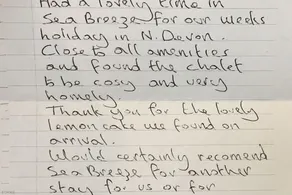 Had a lovely time in
Sea Breeze for our weeks
holiday in N. Devon.
Close to all amenities
and found the chalet
to be cosy and very
homely.
Thank you for the lovely
lemon cake we found on
arrival.
Would certainly recomend
Sea Breeze for another
stay for us or for